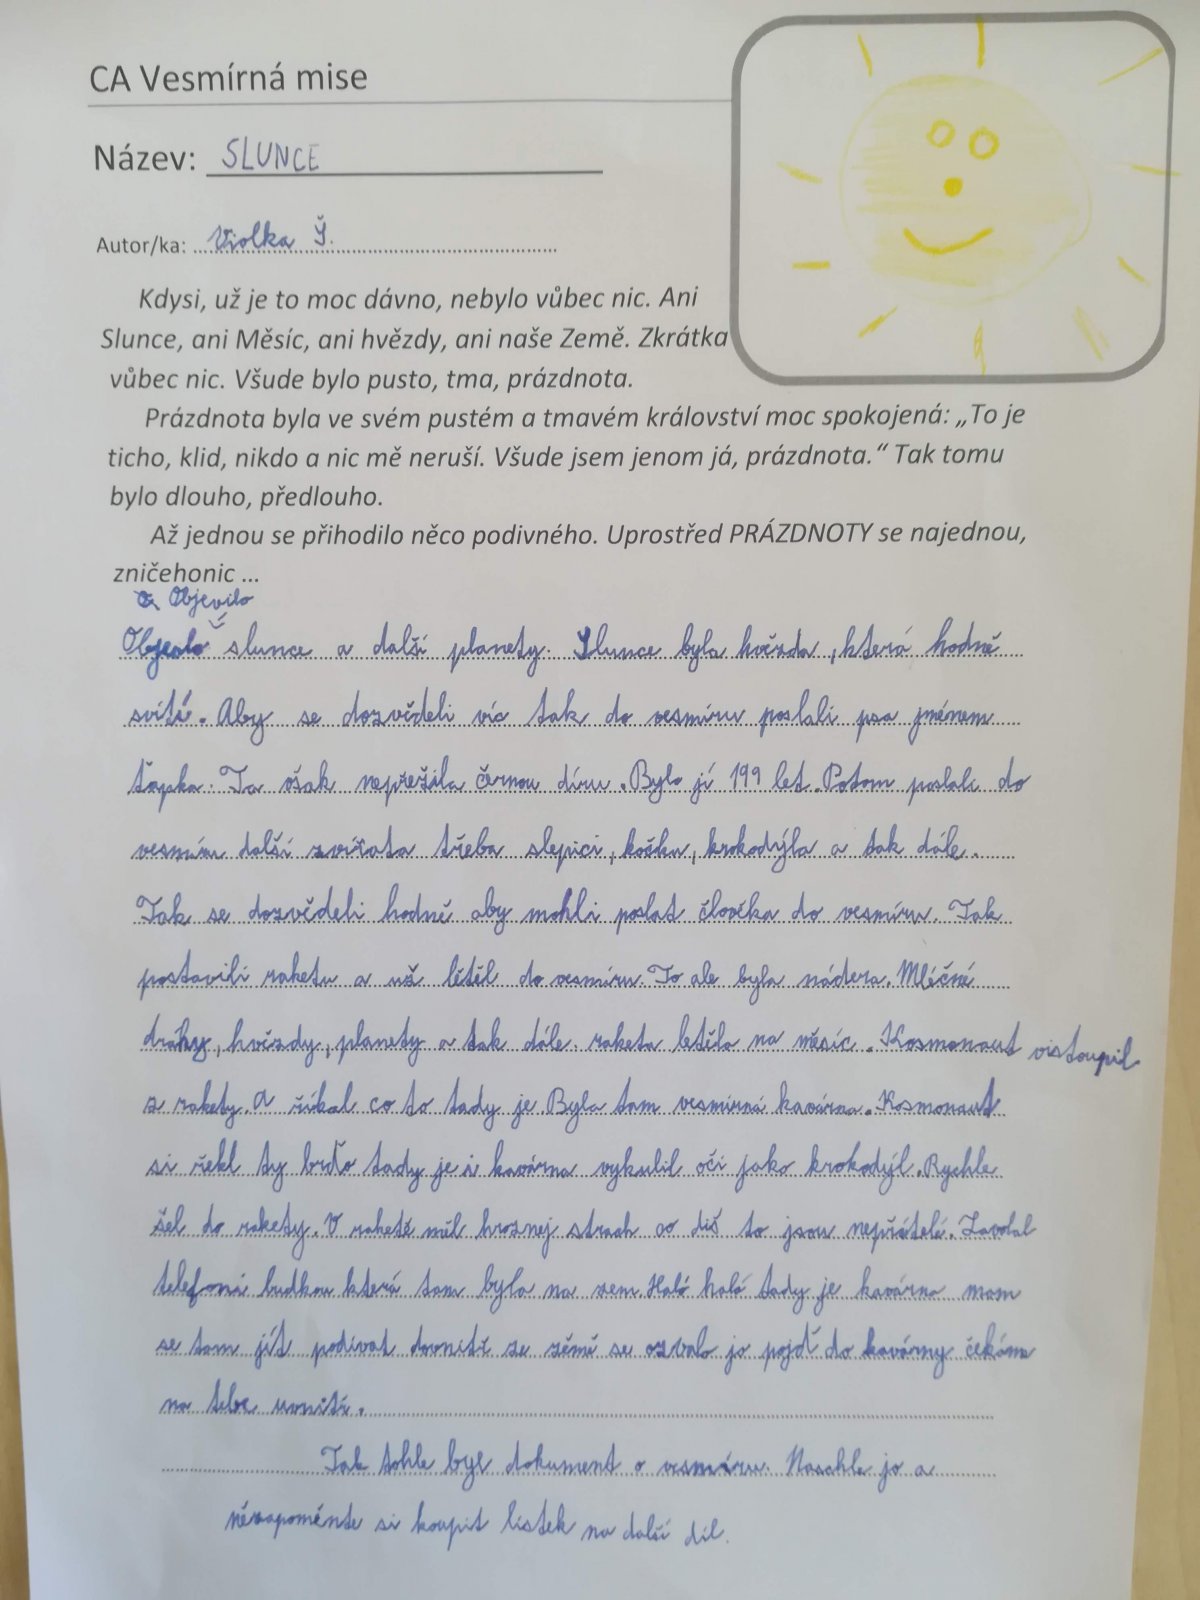 CA Vesmírná mise
Název: SLUNCE
Autor/ka: Violka Š.
Kdysi, už je to moc dávno, nebylo vůbec nic. Ani
Slunce, ani Měsíc, ani hvězdy, ani naše Země. Zkrátka
vůbec nic. Všude bylo pusto, tma, prázdnota.
Prázdnota byla ve svém pustém a tmavém království moc spokojená: „To je
ticho, klid, nikdo a nic mě neruší. Všude jsem jenom já, prázdnota.“ Tak tomu
bylo dlouho, předlouho.
Až jednou se přihodilo něco podivného. Uprostřed PRÁZDNOTY se najednou,
zničehonic ...
Objevilo
slunce a další planety. Slunce byla hvězda, která hodně
svítí. Aby se dozvěděli víc tak do vesmíru poslali psa jménem
ťapka. Ta však nepřežila černou díru. Bylo jí 199 let. Potom poslali do
vesmíru další zvířata třeba slepici, kočku, krokodýla a tak dále.
Tak se dozvěděli hodně aby mohli poslat člověka do vesmíru. Tak
postavili raketu a už lětěl do vesmíru. To ale byla nádera. Mléčné
drahy, hvězdy, planety a tak dále. raketa letěla na měsíc. Kosmonaut vistoupil
z rakety. A říkal co to tady je. Byla tam vesmírná kavárna. Kosmonaut
si řekl ty brďo tady je i kavárna vykulil oči jako krokodýl. Rychle
šel do rakety. V raketě měl hroznej strach co diš to jsou nepřátelé. Zavolal
telefoní budkou která tam byla na zem Haló haló tady je kavárna mam
se tam jít podívat dovnitř ze země se ozvalo jo pojď do kavárny čekáme
na tebe uvnitř.
Tak tohle byl dokument o vesmíru. Naschle jo a
nězapoměnte si koupit lístek na další díl.